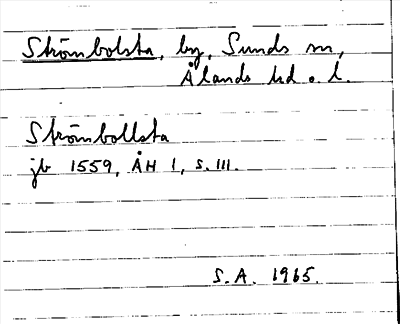 Strömbolsta, by, Sunds sn,
Ålands hd o. l.
Strömbollsta
jb 1559, ÅH 1, s. 111.
S.A. 1965.